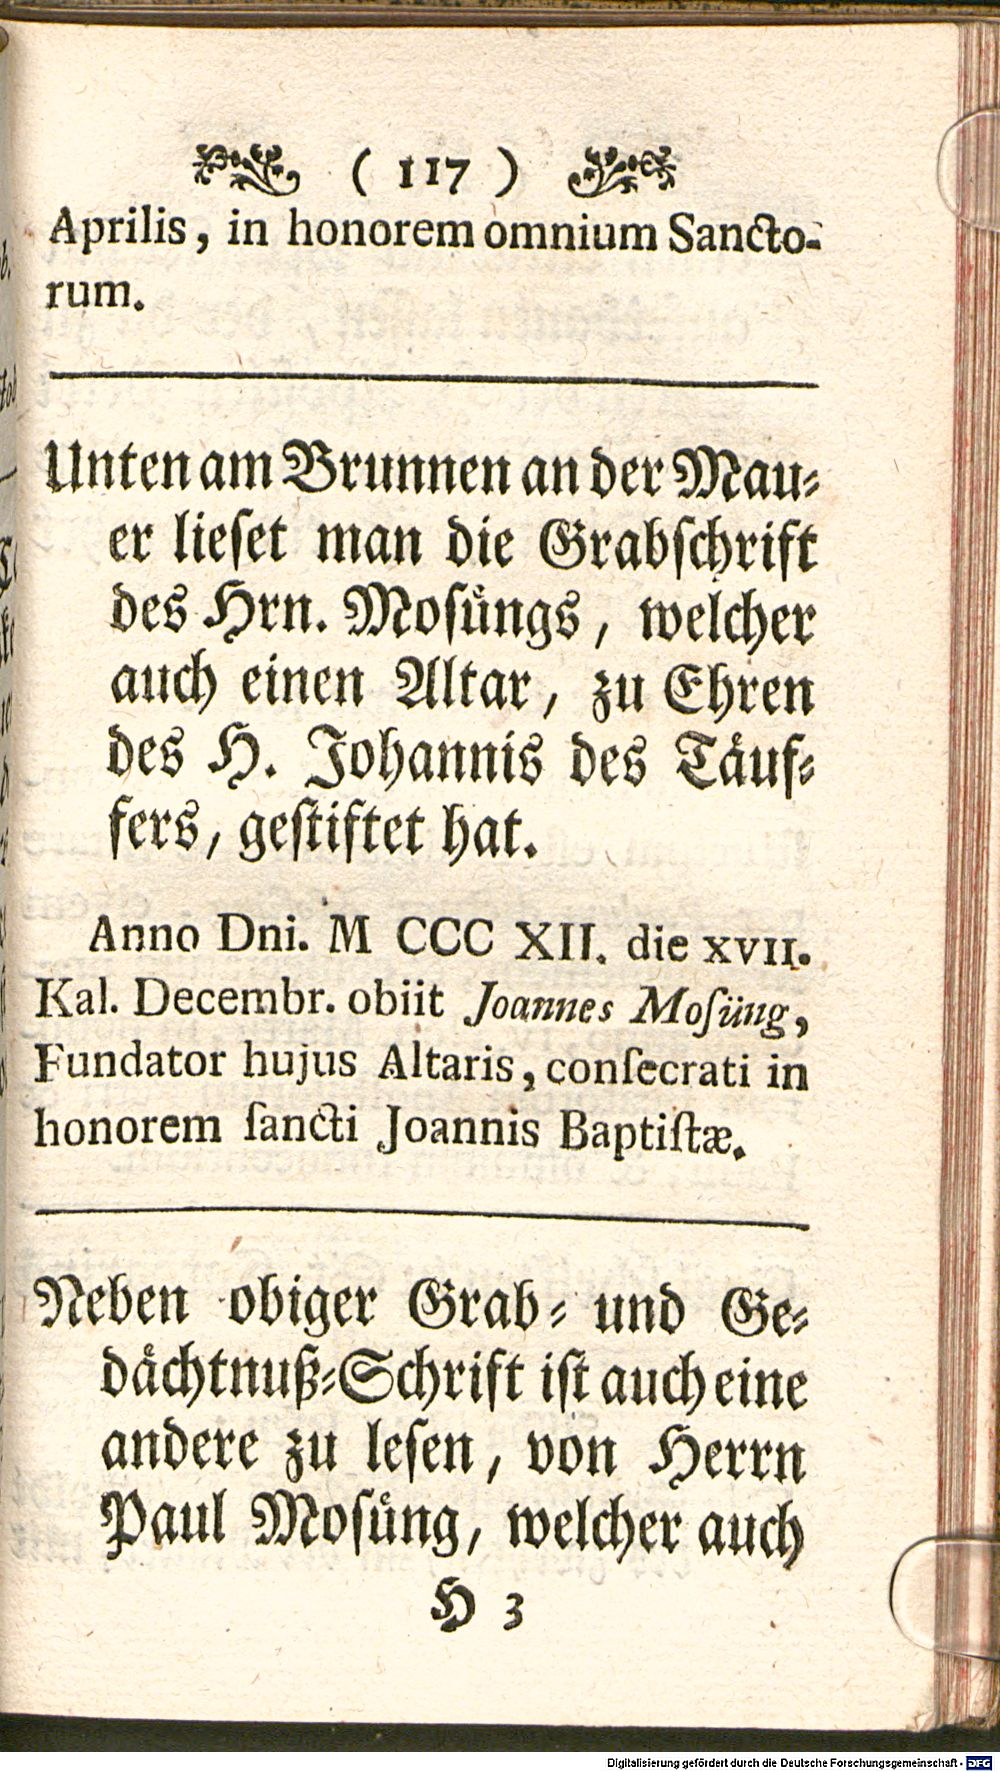 ( 117 )
Aprilis, in honorem omnium Sancto-
rum.
Unten am Brunnen an der Mau⸗
er lieſet man die Grabſchrift
des Hrn. Moſuͤngs, welcher
auch einen Altar, zu Ehren
des H. Johannis des Taͤuf⸗
fers, geſtiftet hat.
Anno Dni. M CCC XII. die XVII.
Kal. Decembr. obiit Joannes Moſüng,
Fundator hujus Altaris, conſecrati in
honorem ſancti Joannis Baptiſtæ.
Neben obiger Grab⸗ und Ge⸗
daͤchtnuß⸗Schrift iſt auch eine
andere zu leſen, von Herrn
Paul Moſuͤng, welcher auch
H 3
Digitalisierung gefördert durch die Deutsche Forschungsgemeinschaft - DFG